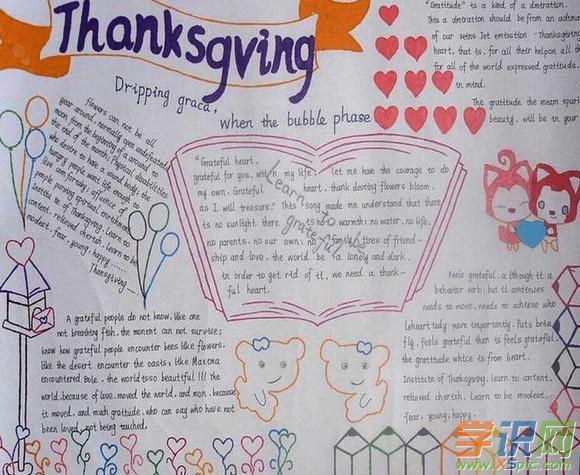 Thanksgving
Dripping graca,
when the bubble phase
"Gratitude" is a kind of a dmtration.
This a dmtration should be from an adema
of our veins Jet emtustion "Thanksgiving
heart, that is, for all their helpon all or
for all of the world expressed gratitude,
in mind.
The gratitude the meam spar
beauty, will be in your
flowers can not be all
year around, normally can undefeated
moon, from the beginning of a around to
the end of the month; Physical disabilities
who desire to have a sound body; the
hungry people want life enough to
live comfortably; affluence of
people purving spiritual enrichment.
Institute of Thanksgiving, Learn to
content, relieved cherish, Learn to be
modest, fear, young, happy......
Thanksgiving—
"Grateful heart,
grateful for you, with my life, Let me have the courage to do
my own. Grateful heart, thank desting flowers bloom,
as I will treasure." This song made me understand that there
is no sunlight there is no warmth; no water, no life;
no parents, no our own; no family, tires of friend-
ship and love, the world be a lonely and dark.
in order to get rid of it, we need a thank-
ful heart.
Learn to be
grateful
A grateful people do not know, like one
not breathing fish, the moment can not survive;
know how grateful people encounter bees like flowers,
like the desert encounter the oasis, like Maxima
encountered Bole, the world isso beautiful!!! the
world, because of love, moved the world, and mon, because
it moved, and much gratitude, who can say who have not
been loved, not being touched.
Feels grateful, a lthough it a
behavior verb, but it continues
needs to move, needs to achieve who
Leheart ady more importantly. Puts brie
fly, feels grateful then is feels grateful,
the gratitude which is from heart.
Institute of Thanksgiving, learn to content,
relieved cherish. Learn to be modest,
fear, young, happy.
学识网
www.XSpic.com